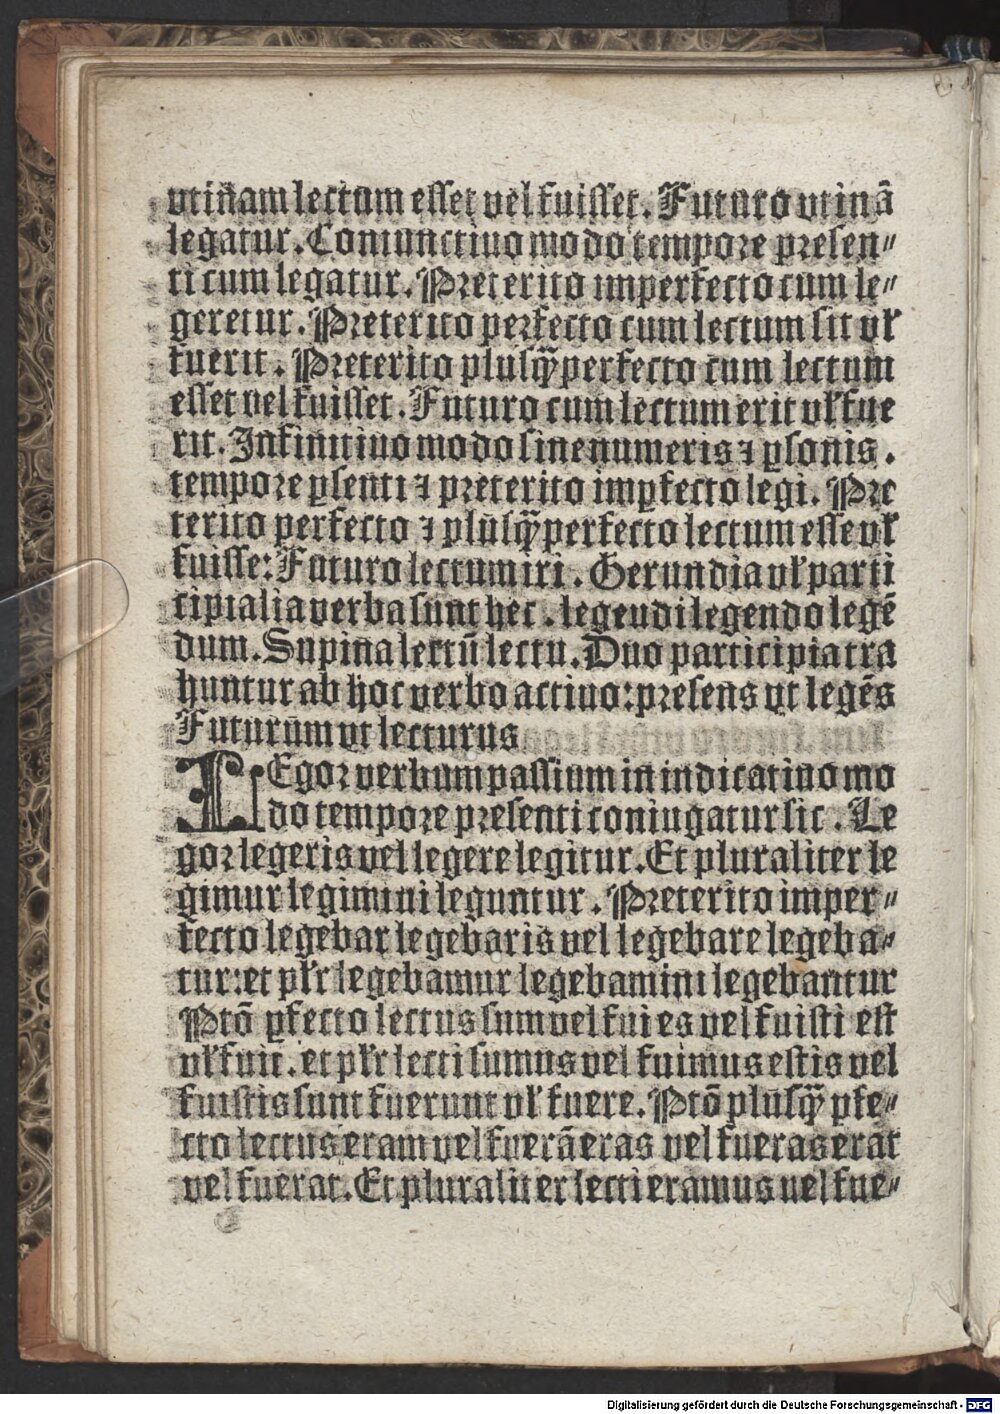 vtinam lectum esset vel fuisset. Futuro vtinā
legatur. Coniunctiuo modo tempore presen⸗
ti cum legatur. Preterito imperfecto cum le⸗
geretur. Preterito perfecto cum lectum sit vƚ
fuerit. Preterito plusqꝫperfecto cum lectum
esset vel fuisset. Futuro cum lectum erit vƚ fue
rit. Infinitiuo modo sine numeris ⁊ ꝑsonis.
tempore p̄senti ⁊ preterito imꝑfecto legi. Pre
terito perfecto ⁊ plusqꝫperfecto lectum esse vƚ
fuisse: Futuro lectum iri. Gerundia vƚ parti
cipialia verba sunt hec. legendi legendo legē
dum. Supina lectū lectu. Duo participia tra
huntur ab hoc verbo actiuo: presens vt legēs
Futurum vt lecturus
LEgor verbum passiuum in indicatiuo mo
do tempore presenti coniugatur sic. Le
gor legeris vel legere legitur. Et pluraliter le
gimur legimini leguntur. Preterito imper⸗
fecto legebar legebaris vel legebare legeba⸗
tur: et pƚr legebamur legebamini legebantur
Ptō ꝑfecto lectus sum vel fui es vel fuisti est
vƚ fuit. et pƚr lecti sumus vel fuimus estis vel
fuistis sunt fuerunt vƚ fuere. Ptō plusqꝫ ꝑfe⸗
cto lectus eram vel fuerā eras vel fueras erat
vel fuerat. Et pluraliter lecti eramus vel fue⸗
Digitalisierung gefördert durch die Deutsche Forschungsgemeinschaft - DFG